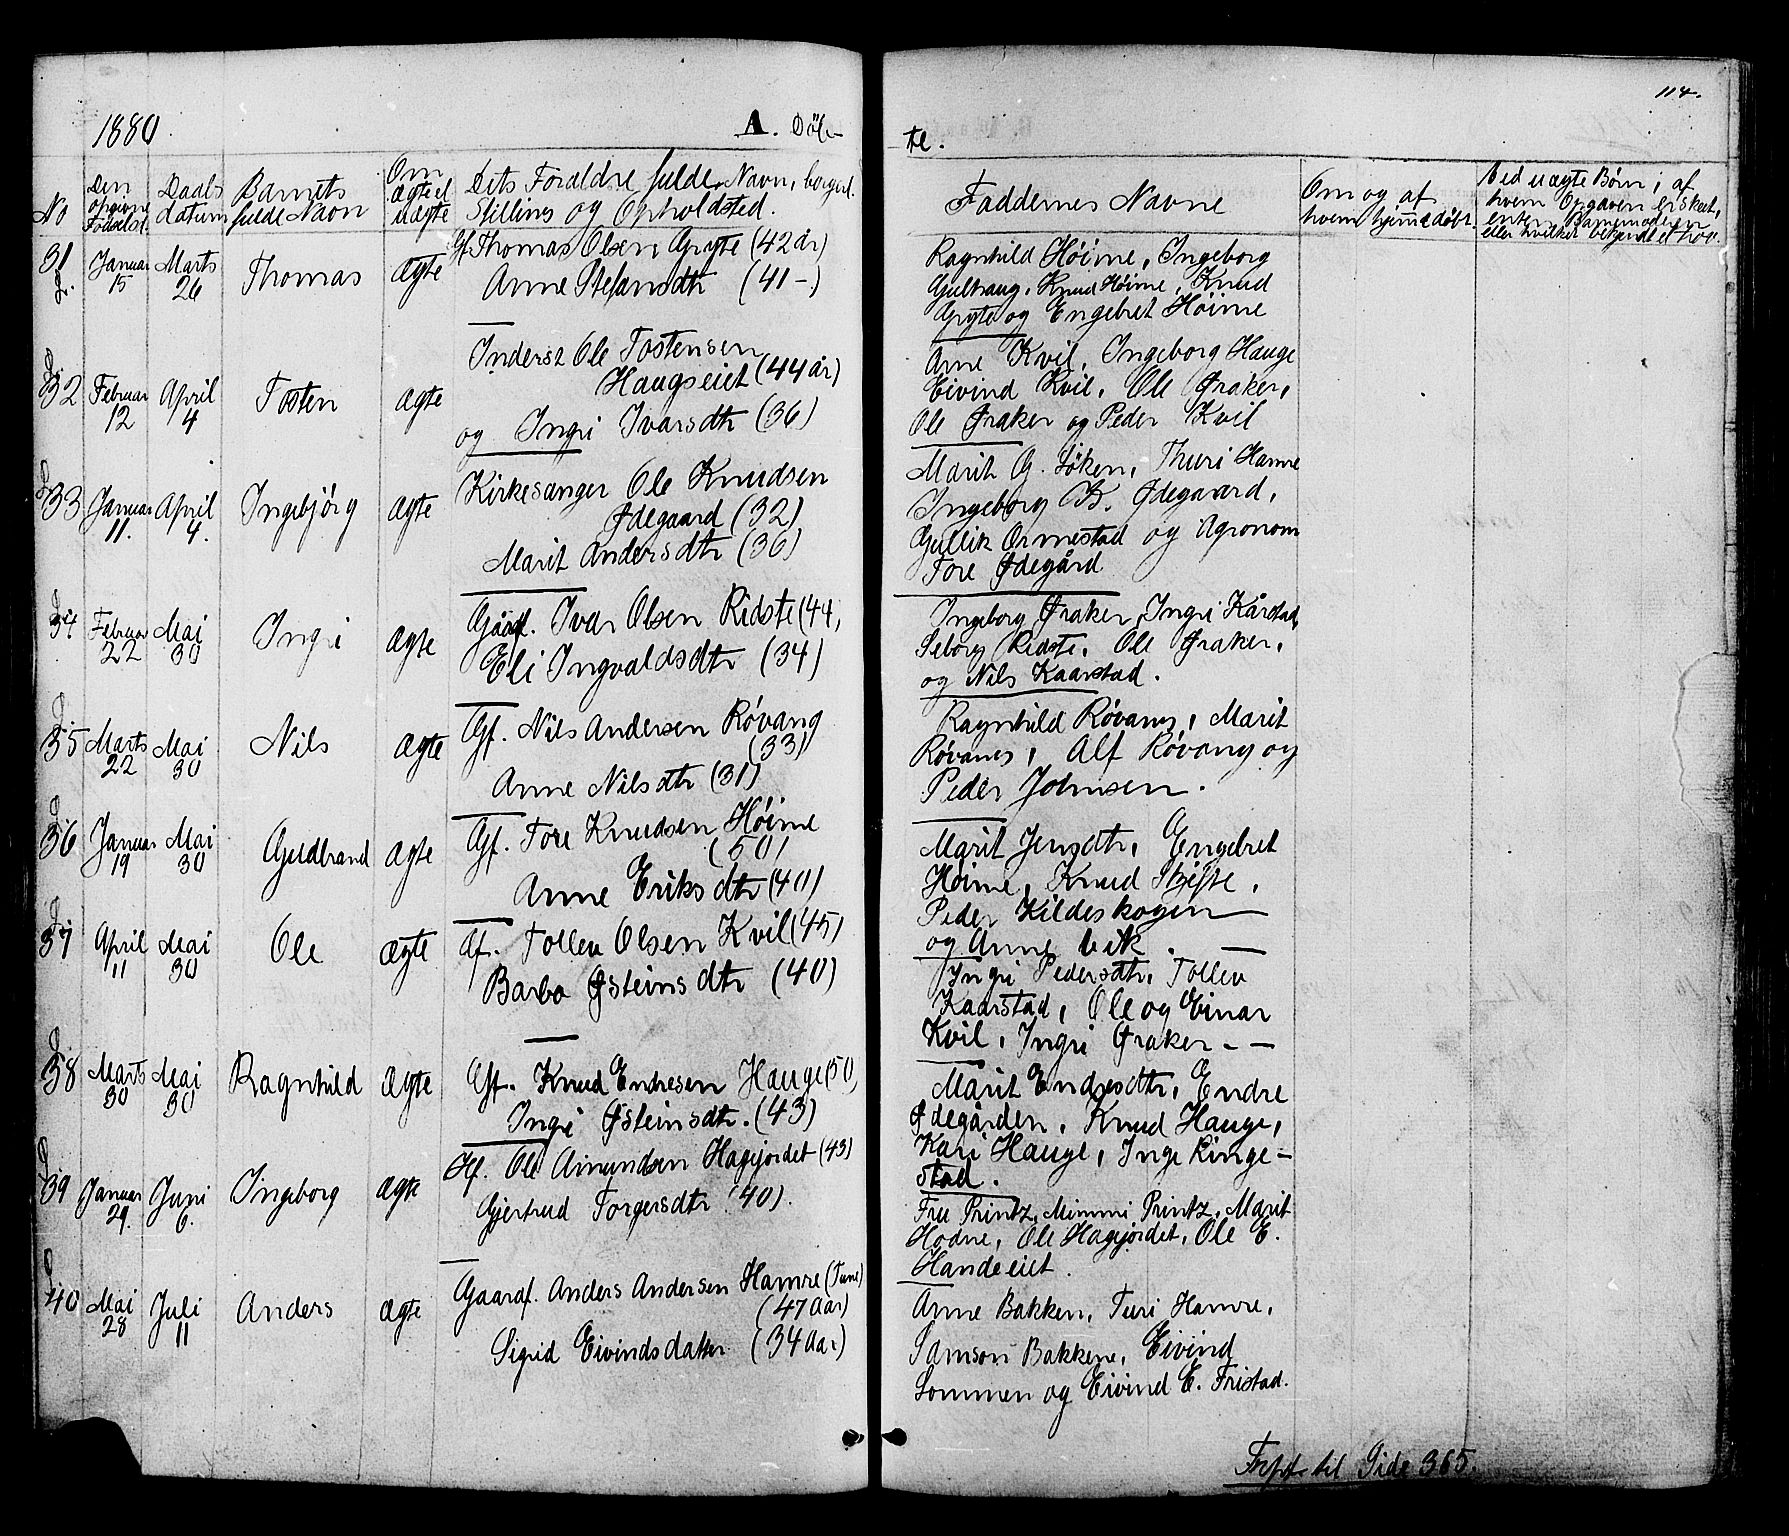 114.
1880. A. Döb-
te.
No
Den opgivne Fødselsd.
Daabs datum
Barnets fulde Navn
Om ægte el. uægte
Dets Forældre fulde Navn, borgerl. Stilling og Opholdsted.
Faddernes Navne
Om og af hvem hjemmedøbt.
Ved uægte Børn; af hvem Opgaven er skeet, enten Barnemoderen eller
31 Januar 15 Marts 26 Thomas ægte
Gf. Thomas Olsen Gryte (42 år)
Anne Stefansdtr (41 -)
Ragnhild Høime, Ingeborg
Gultraug, Knud Høime, Knud
Gryte og Engebret Høime
32 Februar 12 April 4 Tosten ægte
Inderst Ole Tostensen
Haugseiet (44 år)
og Ingri Ivarsdtr (36)
Arne Kvil, Ingeborg Hauge
Eivind Kvil, Ole Øraker,
Ole Øraker og Peder Kvil
33 Januar 11. April 4. Ingebjørg ægte
Kirkesanger Ole Knudsen
Ødegaard (32)
Marit Andersdtr (36)
Marit G. Løken, Thuri Hamre
Ingeborg K. Ødegaard,
Gullik Ormestad og Agronom
Tore Ødegård
34 Februar 22 Mai 30 Ingri ægte
Gaaf. Ivar Olsen Ridste (44,
Eli Ingvaldsdtr (34)
Ingeborg Øraker, Ingri Kårstad,
Seborg Ridste, Ole Øraker,
og Nils Kaarstad.
35 Marts 22 Mai 30 Nils ægte
Gf. Nils Andersen Røvang
(33)
Anne Nilsdtr (31)
Ragnhild Røvang, Marit
Røvang, Alf Røvang og
Peder Johnsen.
36 Januar 19 Mai 30 Gudbrand ægte
Gf. Tore Knudsen Høime
(50)
Anne Eriksdtr (40)
Marit Jensdtr, Engebret
Høime, Knud Skifte,
Peder Kildeskogen
og Anne Vik.
37 April 11 Mai 30 Ole ægte
Gf. Tollev Olsen Kvil (45)
Barbo Østeinsdtr (40)
Ingri Pedersdtr, Tollev
Kaarstad, Ole og Einar
Kvil, Ingri Øraker - -
38 Marts 30 Mai 30 Ragnhild ægte
Gf. Knud Endresen Hauge (50)
Ingri Østeinsdtr. (43)
Marit Endresdtr, Endre
Ødegården, Knud Hauge,
Kari Hauge, Inge Ringe-
stad.
39 Januar 29. Juni 6. Ingeborg ægte
Hf. Ole Amundsen Hagejordet (43)
Gjertrud Torgersdtr (40).
Fru Printz, Mimmi Printz, Marit
Hodne, Ole Hagejordet, Ole E.
Handeeiet.
40 Mai 28 Juli 11 Anders ægte
Gaardf. Anders Andersen Hamre (Tune)
(47 Aar)
Sigrid Eivindsdatter (34 Aar)
Anne Bakken, Turi Hamre,
Samson Bakkene, Eivind
Sommen og Eivind E. Fristad.
til Side 365.